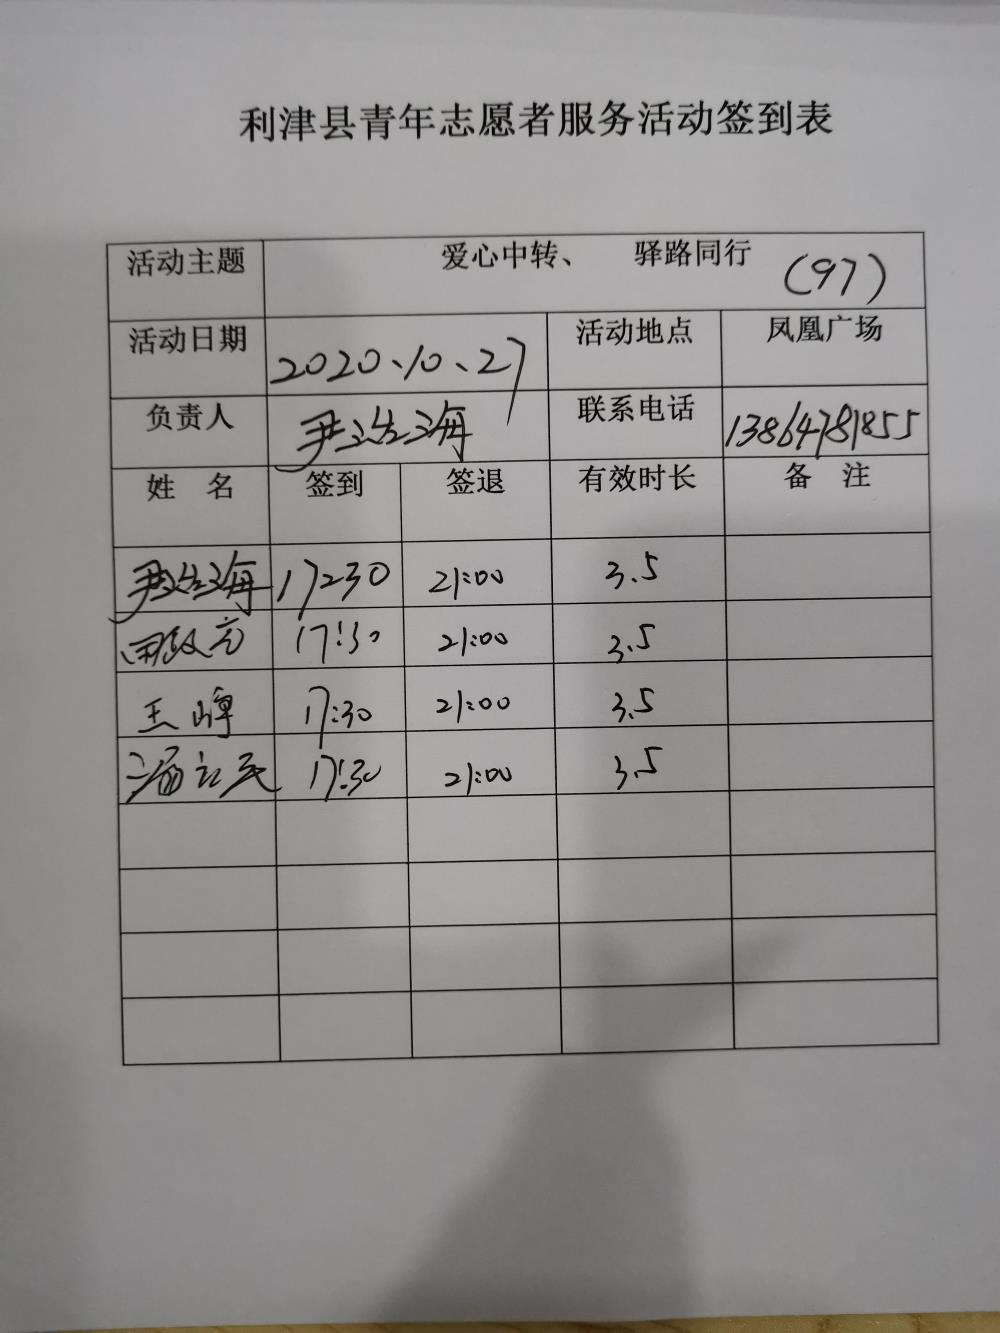 利津县青年志愿者服务活动签到表
活动主题 爱心中转、 驿路同行 (97)
活动日期 2020、10、27 活动地点 凤凰广场
负责人 尹海 联系电话 13864781855
姓 名 签到 签退 有效时长 备 注
尹海 17:30 21:00 3.5
17:30 21:00 3.5
王峰 17:30 21:00 3.5
民 17:30 21:00 3.5